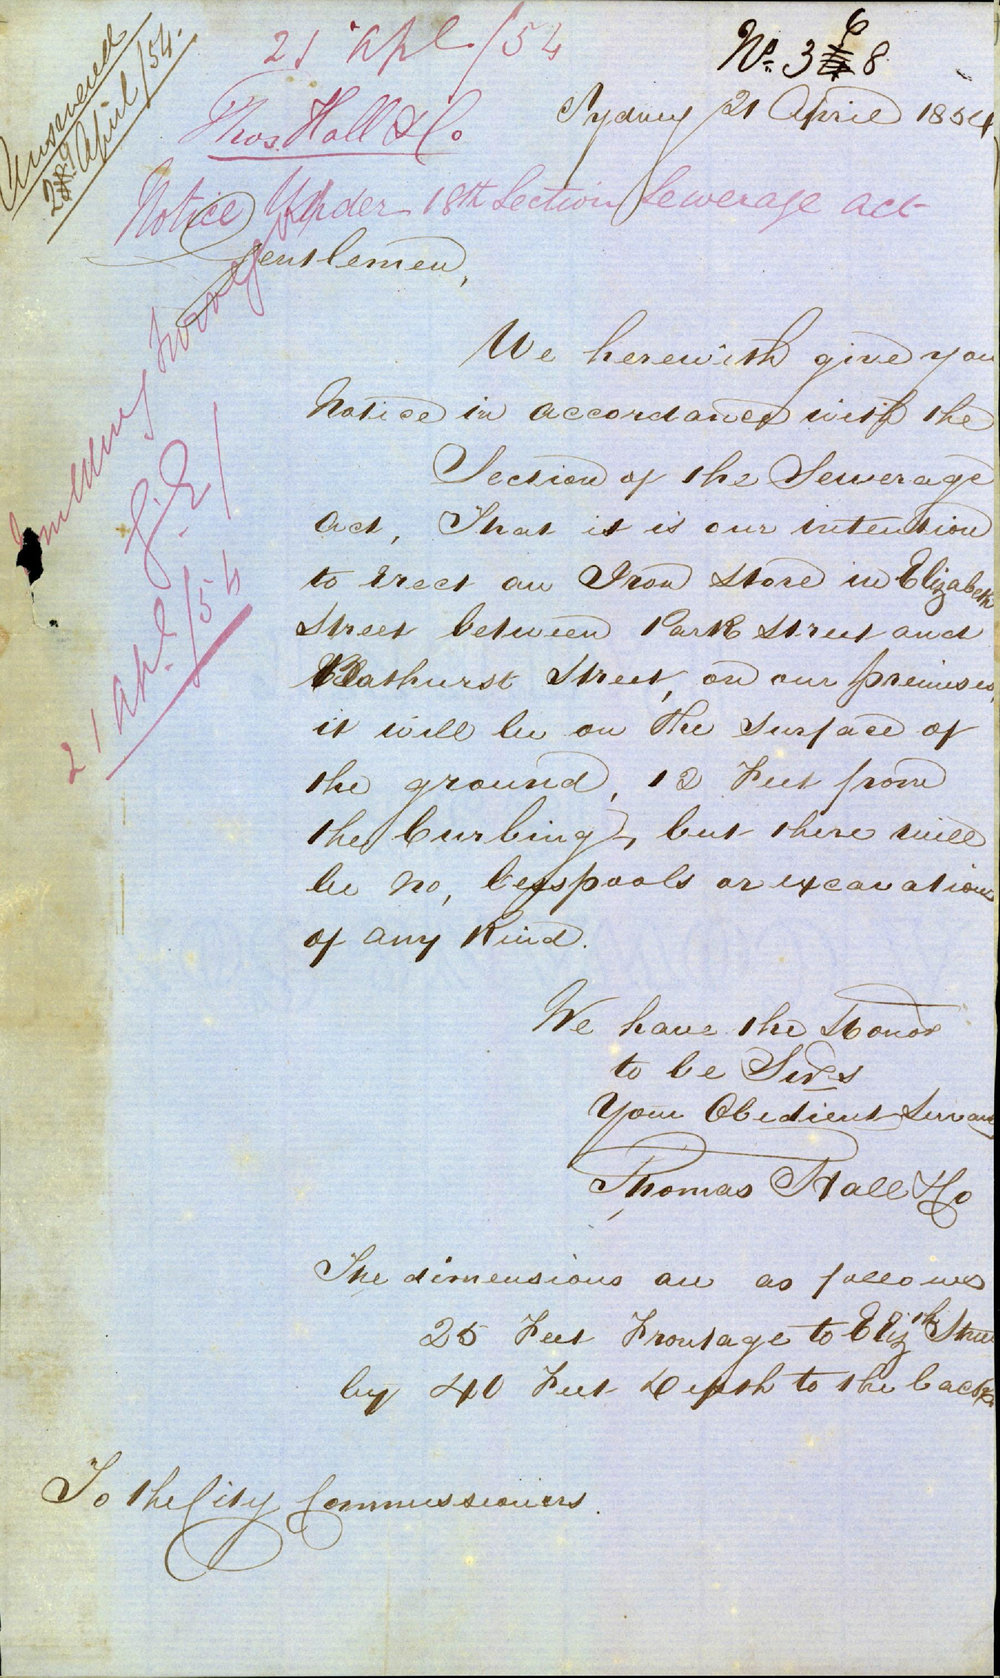 Answered
29 April/54.
21 Apl./54
No. 368
Thos Hall & Co
Sydney 21 April 1854
Notice Under 18th Section Sewerage act
Gentlemen,
We herewith give you
Notice in accordance with the
Section of the Sewerage
Act, That it is our intention
to Erect an Iron Store in Elizabeth
Street between Park Street and
Bathurst Street, on our premises,
it will be on the Surface of
the ground, 12 Feet from
the Curbing, but there will
be no, Cesspools or excavations
of any Kind.
G.E/
21 Apl./54
We have the Honor
to be Sirs
Your Obedient Servants
Thomas Hall & Co
The dimensions are as follows
25 Feet Frontage to Elizth Street
by 40 Feet Depth to the back
To the City Commissioners.